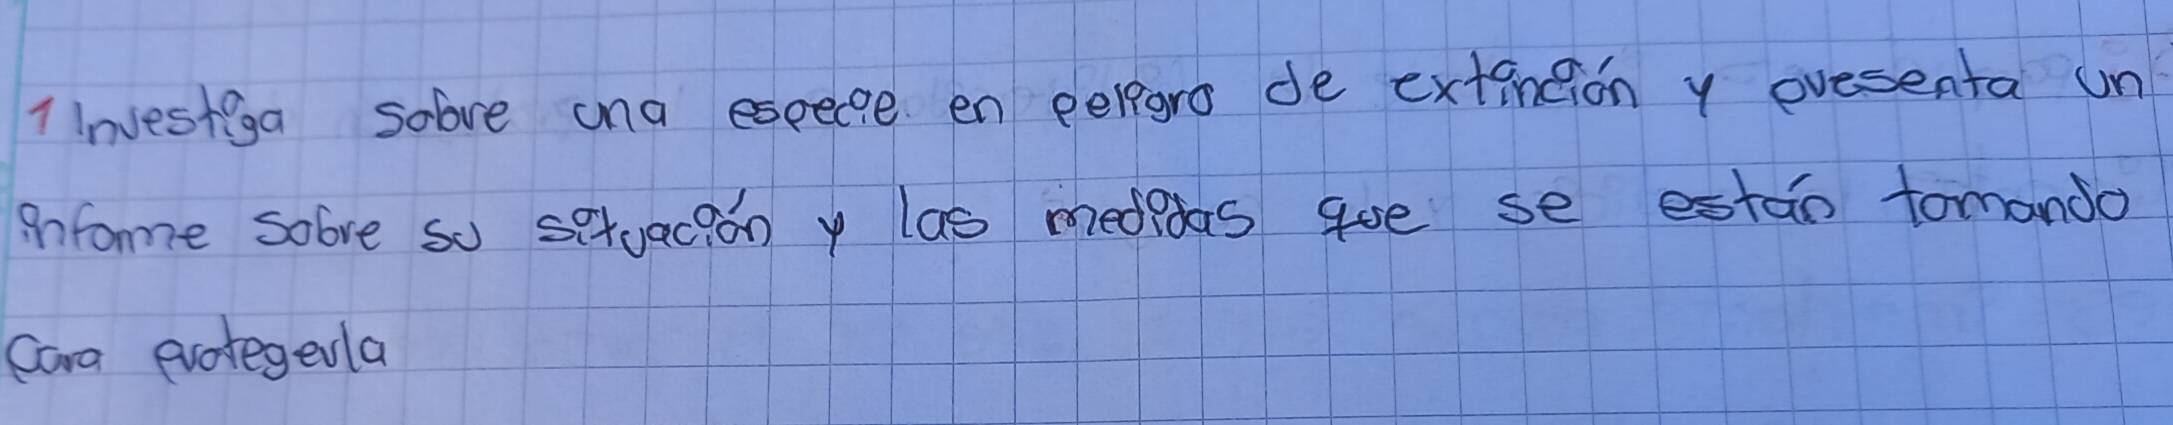 1 Investiga sobre una especie en peligro de extinción y presenta un
informe sobre su situación y las medidas que se están tomando
para protegerla